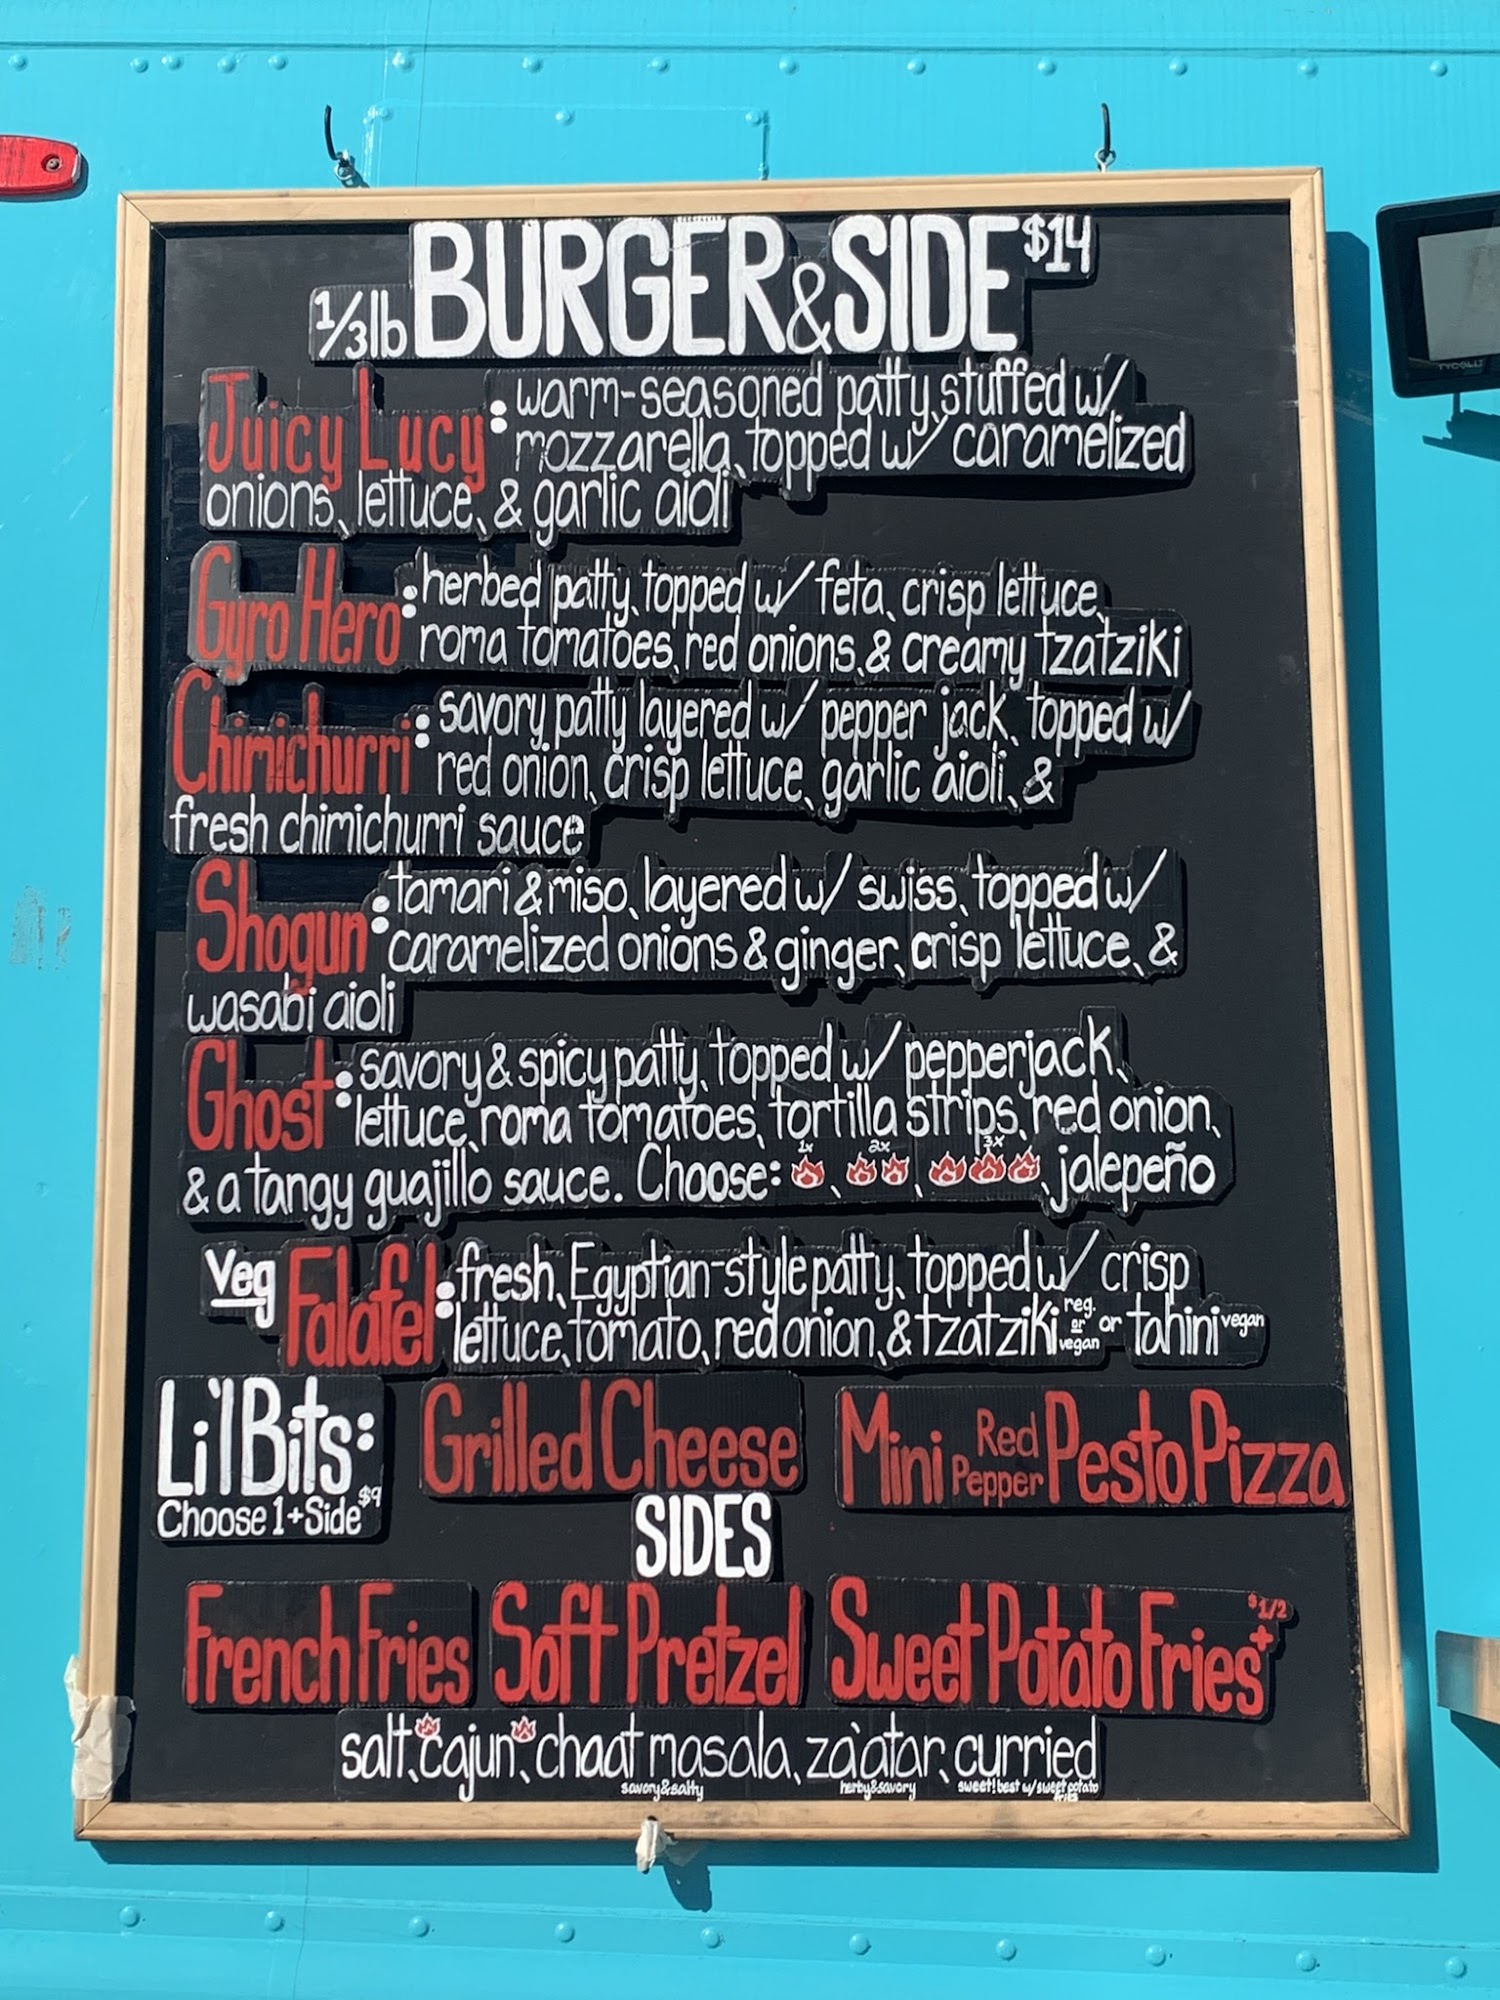 1/3lb BURGER & SIDE $14
Juicy Lucy: warm-seasoned patty, stuffed w/
mozzarella, topped w/ caramelized
onions, lettuce, & garlic aioli
Gyro Hero: herbed patty, topped w/ feta, crisp lettuce,
roma tomatoes, red onions, & creamy tzatziki
Chimichurri: savory patty layered w/ pepper jack, topped w/
red onion, crisp lettuce, garlic aioli, &
fresh chimichurri sauce
Shogun: tamari & miso, layered w/ swiss, topped w/
caramelized onions & ginger, crisp lettuce, &
wasabi aioli
Ghost: savory & spicy patty, topped w/ pepperjack,
lettuce, roma tomatoes, tortilla strips, red onion,
& a tangy guajillo sauce. Choose: 1x, 2x, 3x, jalepeño
Veg Falafel: fresh, Egyptian-style patty, topped w/ crisp
lettuce, tomato, red onion, & tzatziki reg. or vegan or tahini vegan
Li'l Bits: Grilled Cheese Mini Red Pepper Pesto Pizza
Choose 1 + Side $9
SIDES
French Fries Soft Pretzel Sweet Potato Fries + $1/2
salt, cajun, chaat masala, za'atar, curried
savory & salty herby & savory sweet! best w/ sweet potato
fries
TYCOLIT